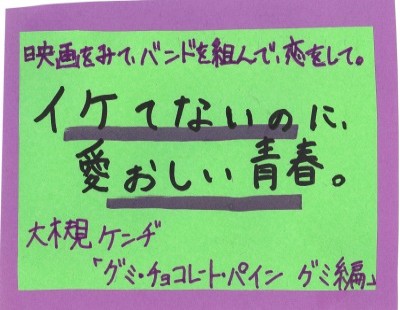 映画をみて、バンドを組んで、恋をして。
イケてないのに、
愛おしい青春。
大槻ケンヂ
「グミ・チョコレート・パイン グミ編」